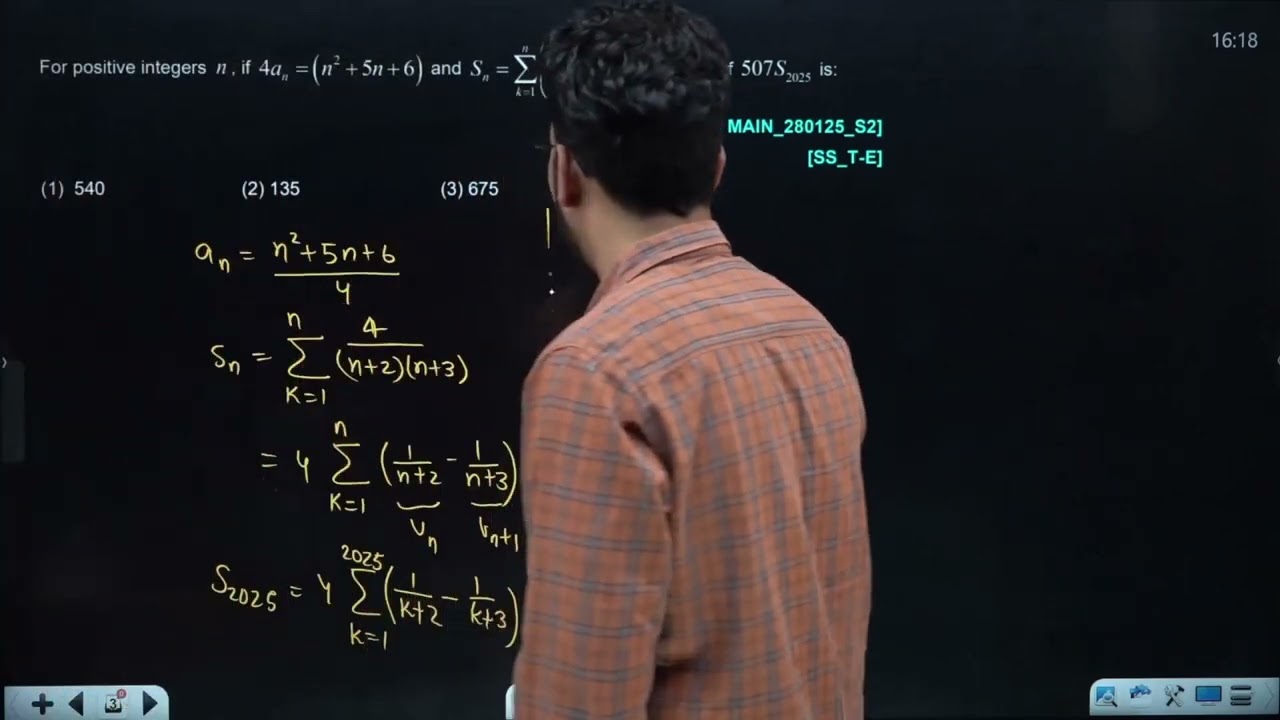 16:18
For positive integers n, if 4aₙ = (n² + 5n + 6) and Sₙ = ∑ₖ₌₁ⁿ ( f 507S₂₀₂₅ is:
MAIN_280125_S2]
[SS_T-E]
(1) 540 (2) 135 (3) 675
aₙ = (n²+5n+6)/4
Sₙ = ∑_{K=1}^{n} 4/((n+2)(n+3))
= 4 ∑_{K=1}^{n} (1/(n+2) - 1/(n+3))
Vₙ Vₙ₊₁
S₂₀₂₅ = 4 ∑_{k=1}^{2025} (1/(k+2) - 1/(k+3))
3